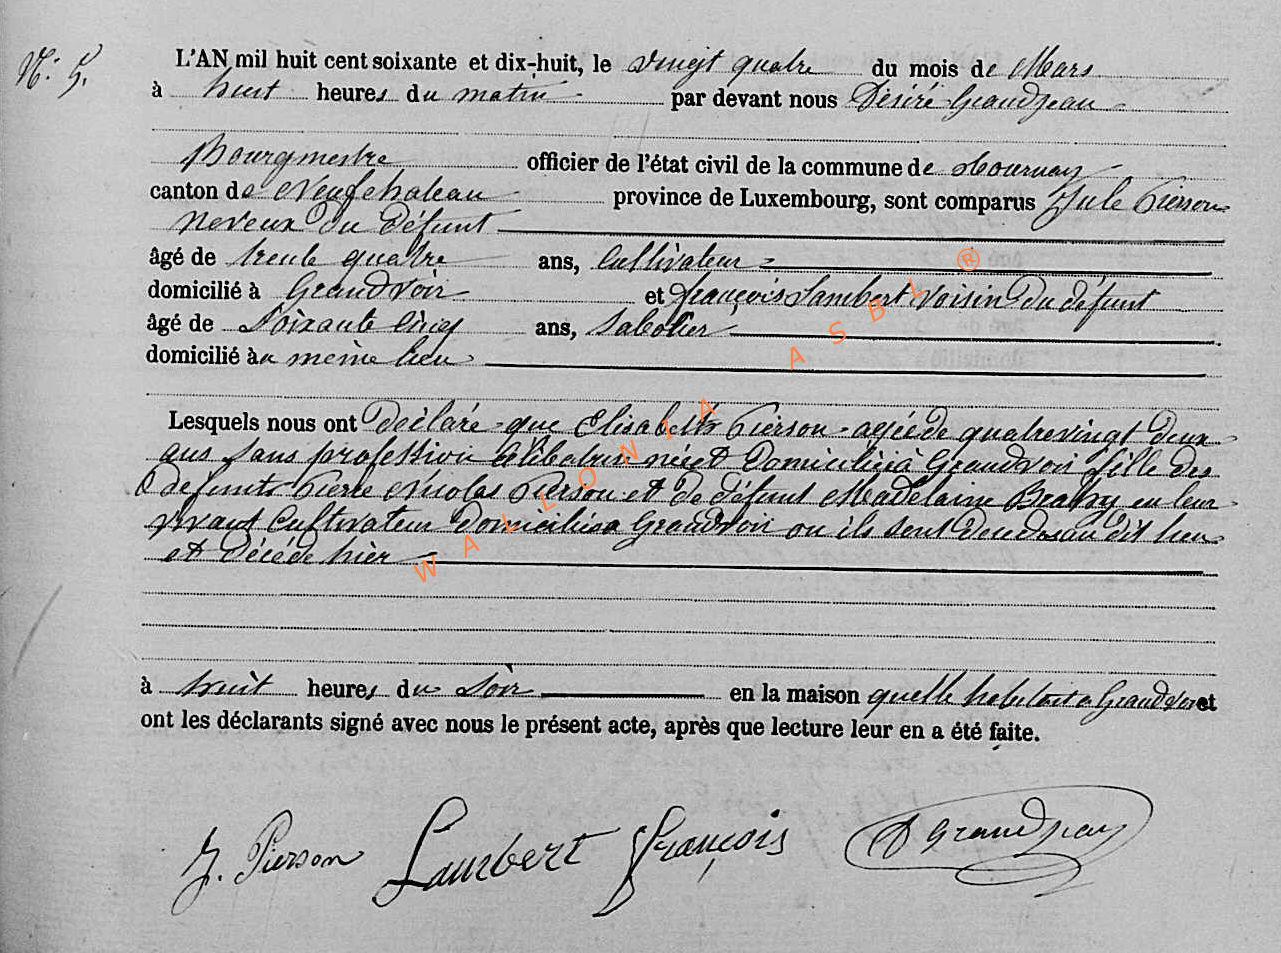 N: 5.
L'AN mil huit cent soixante et dix-huit, le vingt quatre du mois de Mars
à huit heures du matin par devant nous Désiré Grandjean
Bourgmestre officier de l'état civil de la commune de Tournay
canton de Neufchateau province de Luxembourg, sont comparus Jule Pierson
neveux du défunt
âgé de trente quatre ans, Cultivateur
domicilié à Grandvoir et françois Lambert voisin du défunt
âgé de Soixante Cinq ans, Sabotier
domicilié à u même lieu
Lesquels nous ont Déclaré que Elisabeth Pierson agée de quatrevingt deux
ans Sans profession Célibatrie née et Domiciliéà Grandvoir fille des
défunts Pierre Nicolas Pierson et de défunt Madelaine en leur
vivant Cultivateur Domiciliésa Grandvoir ou ils sont au dit lieu
et Décéde hier
à huit heures du Soir en la maison quelle habitait a Grandvoir et
ont les déclarants signé avec nous le présent acte, après que lecture leur en a été faite.
J. Pierson Lambert François D Grandjean
WALLONIA ASBL ®